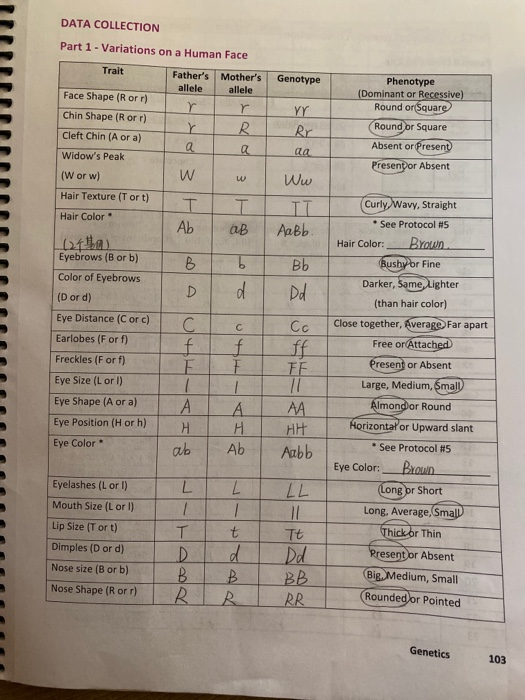 DATA COLLECTION
Part 1 - Variations on a Human Face
Trait Father's allele Mother's allele Genotype Phenotype (Dominant or Recessive)
Face Shape (R or r) r r rr Round or Square
Chin Shape (R or r) r R Rr Round or Square
Cleft Chin (A or a) a a aa Absent or Present
Widow's Peak (W or w) W w Ww Present or Absent
Hair Texture (T or t) T T TT Curly, Wavy, Straight
Hair Color * Ab aB AaBb * See Protocol #5
Hair Color: Brown
Eyebrows (B or b) B b Bb Bushy or Fine
Color of Eyebrows (D or d) D d Dd Darker, Same, Lighter (than hair color)
Eye Distance (C or c) C c Cc Close together, Average, Far apart
Earlobes (F or f) f f ff Free or Attached
Freckles (F or f) F F FF Present or Absent
Eye Size (L or l) l l ll Large, Medium, Small
Eye Shape (A or a) A A AA Almond or Round
Eye Position (H or h) H H HH Horizontal or Upward slant
Eye Color * ab Ab Aabb * See Protocol #5
Eye Color: Brown
Eyelashes (L or l) L L LL Long or Short
Mouth Size (L or l) l l ll Long, Average, Small
Lip Size (T or t) T t Tt Thick or Thin
Dimples (D or d) D d Dd Present or Absent
Nose size (B or b) B B BB Big, Medium, Small
Nose Shape (R or r) R R RR Rounded or Pointed
Genetics 103